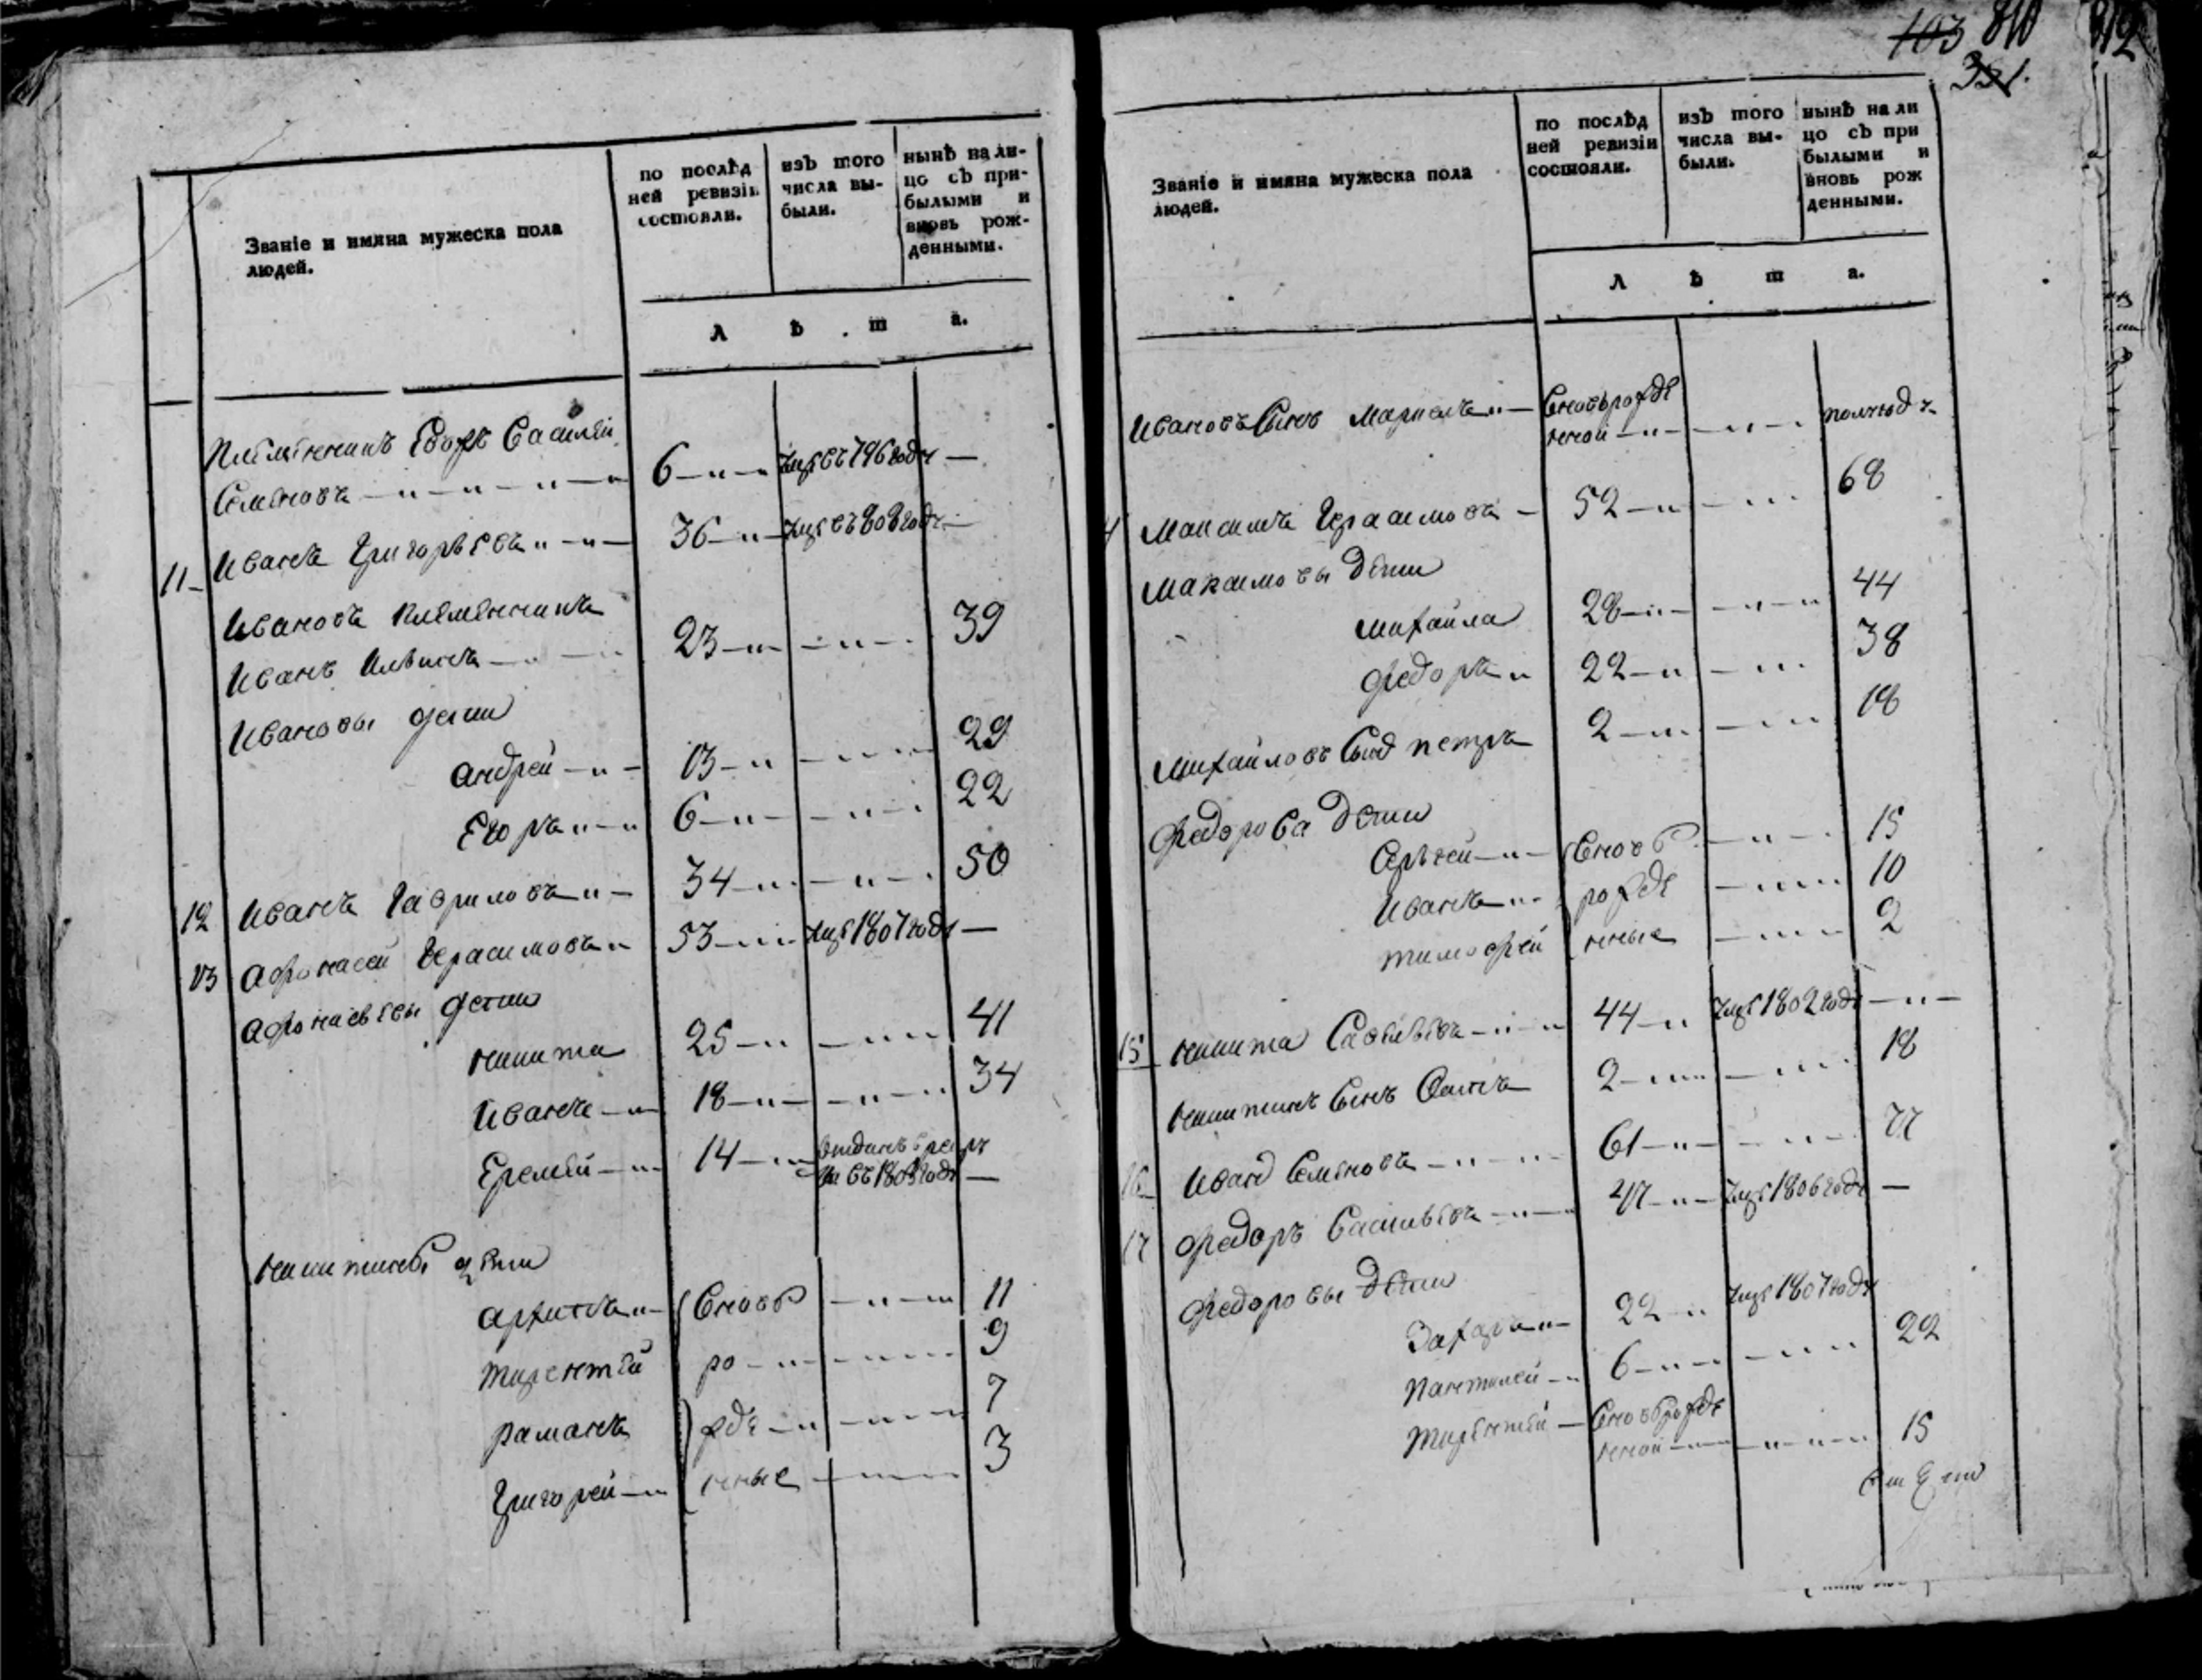 Званіе и имяна мужеска пола
людей.
по послѣд
ней ревизіи
состояли.
изъ того
числа вы-
были.
нынѣ на ли-
цо съ при-
былыми и
вновь рож-
денными.
Л ѣ т а.
племянникъ Егоръ Василей
Семеновъ 6 умре въ 796 годе —
11 Иванъ Григорьевъ 36 умре въ 808 годе —
Ивановъ племенникъ
Иванъ 23 39
Ивановы дети
Андрей 13 29
Егоръ 6 22
12 Иванъ Гавриловъ 34 50
13 Афонасей Герасимовъ 53 умре 1807 годе —
Афонасьевы дети
Никита 25 41
Иванъ 18 34
Еремей 14 отданъ в рекр
въ годе —
Никитины дети
Архипъ вновь 11
Тирентей ро 9
Раманъ жде 7
Григорей нные 3
103 810 812
331.
Званіе и имяна мужеска пола
людей.
по послѣд
ней ревизіи
состояли.
изъ того
числа вы-
были.
нынѣ на ли
цо съ при
былыми и
вновь рож
денными.
Л ѣ т а.
Ивановъ сынъ вновь рожде
нной полгода
Максимъ Герасимовъ 52 68
Максимовы дети
Михайла 28 44
Федоръ 22 38
Михайловъ сынъ Петръ 2 18
Федорова дети
Сергей вновь 15
Иванъ рожде 10
Тимофей нные 2
15 Никита Савельевъ 44 умре 1802 годе
Никитинъ сынъ 2 18
16 Иванъ Семеновъ 61 77
17 Федоръ Васильевъ 47 умре 1806 годе —
Федоровы дети
Захаръ 22 умре 1807 годе
Пантилей 6 22
Тирентей вновь рожде
нной 15